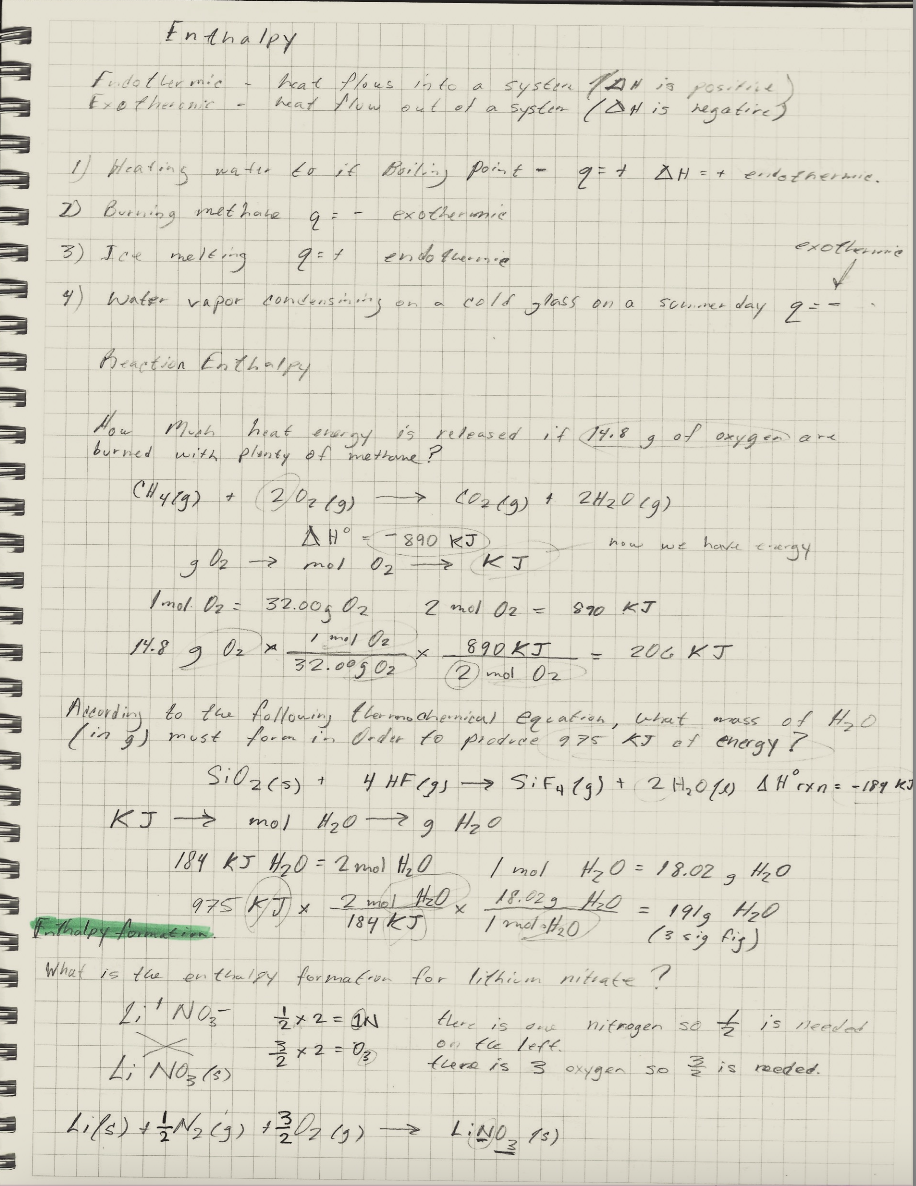 Enthalpy
Endothermic - heat flows into a system (ΔH is positive)
Exothermic - heat flow out of a system (ΔH is negative)
1) Heating water to it Boiling Point - q = + ΔH = + endothermic.
2) Burning methane q = - exothermic
3) Ice melting q = + endothermic
exothermic
4) Water vapor condensining on a cold glass on a summer day q = -
Reaction Enthalpy
How Much heat energy is released if 14.8 g of oxygen are
burned with plenty of methane?
CH₄(g) + 2O₂(g) → CO₂(g) + 2H₂O(g)
ΔH° = -890 KJ
now we have energy
g O₂ → mol O₂ → KJ
1 mol O₂ = 32.00g O₂ 2 mol O₂ = 890 KJ
14.8 g O₂ × 1 mol O₂/32.00g O₂ × 890 KJ/2 mol O₂ = 206 KJ
According to the following thermochemical equation, what mass of H₂O
(in g) must form in order to produce 975 KJ of energy?
SiO₂(s) + 4HF(g) → SiF₄(g) + 2H₂O(l) ΔH°rxn = -184 KJ
KJ → mol H₂O → g H₂O
184 KJ H₂O = 2 mol H₂O 1 mol H₂O = 18.02 g H₂O
975 KJ × 2 mol H₂O/184 KJ × 18.02g H₂O/1 mol H₂O = 191g H₂O
(3 sig fig)
Enthalpy formation.
What is the enthalpy formation for lithium nitrate?
Li⁺ NO₃⁻ 1/2 × 2 = 1N there is one nitrogen so 1/2 is needed
on the left.
3/2 × 2 = O₃ there is 3 oxygen so 3/2 is needed.
Li NO₃(s)
Li(s) + 1/2N₂(g) + 3/2O₂(g) → LiNO₃(s)